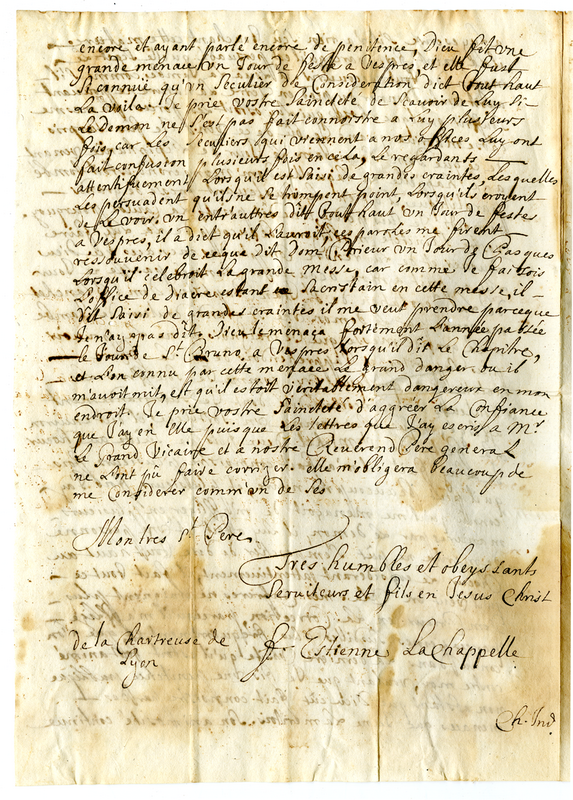 encore et ayant parlé encore de penitence, Dieu fit vne
grande menace vn Jour de feste a Vespres, et elle fust
si connuë qu'vn seculier de Consideration dict tout haut
La voila. Je prie vostre saincteté de scavoir de Luy si
Le demon ne s'est pas fait connoistre a Luy plusieurs
fois, car Les seculiers qui viennent a nos offices Luy ont
fait confusion plusieurs fois en cela, Le regardants
attentifuement Lorsqu'il est saisi de grandes craintes, Lesquelles
Les persuadent qu'ils ne se trompent point, Lorsqu'ils croyent
de Le voir, vn entr'auttres dit tout haut vn Jour de festes
a Vespres, il a dict qu'il L'auroit, ces paroles me firent
ressouvenir de ce que dit Dom Prieur vn Jour de Pasques
Lorsqu'il celebroit La grande Messe, car comme Je faisois
L'office de diacre estant Sacristain en cette messe, il
dit saisi de grandes craintes il me veut prendre parceque
Je n'ay pas dit. Dieu le menaça fortement L'année passée
le Jour de St Bruno a Vespres Lorsqu'il dit Le Chapitre,
et L'on connu par cette menace Le grand danger ou il
m'avoit mit, et qu'il estoit veritablement dangereux en mon
endroit. Je prie vostre saincteté d'aggréer La Confiance
que J'ay en elle puisque Les lettres que J'ay escris a Mr
Le Grand Vicaire et a nostre Reuerend Pere general
ne L'ont pû faire corriger. elle m'obligera beaucoup de
me Considerer comm'vn de ses
Mon tres St Pere
Tres humbles et obeyssants
seruiteurs et fils en Jesus Christ
de la Chartreuse de
Lyon
f. Estienne LaChappelle
Ch. Ind.